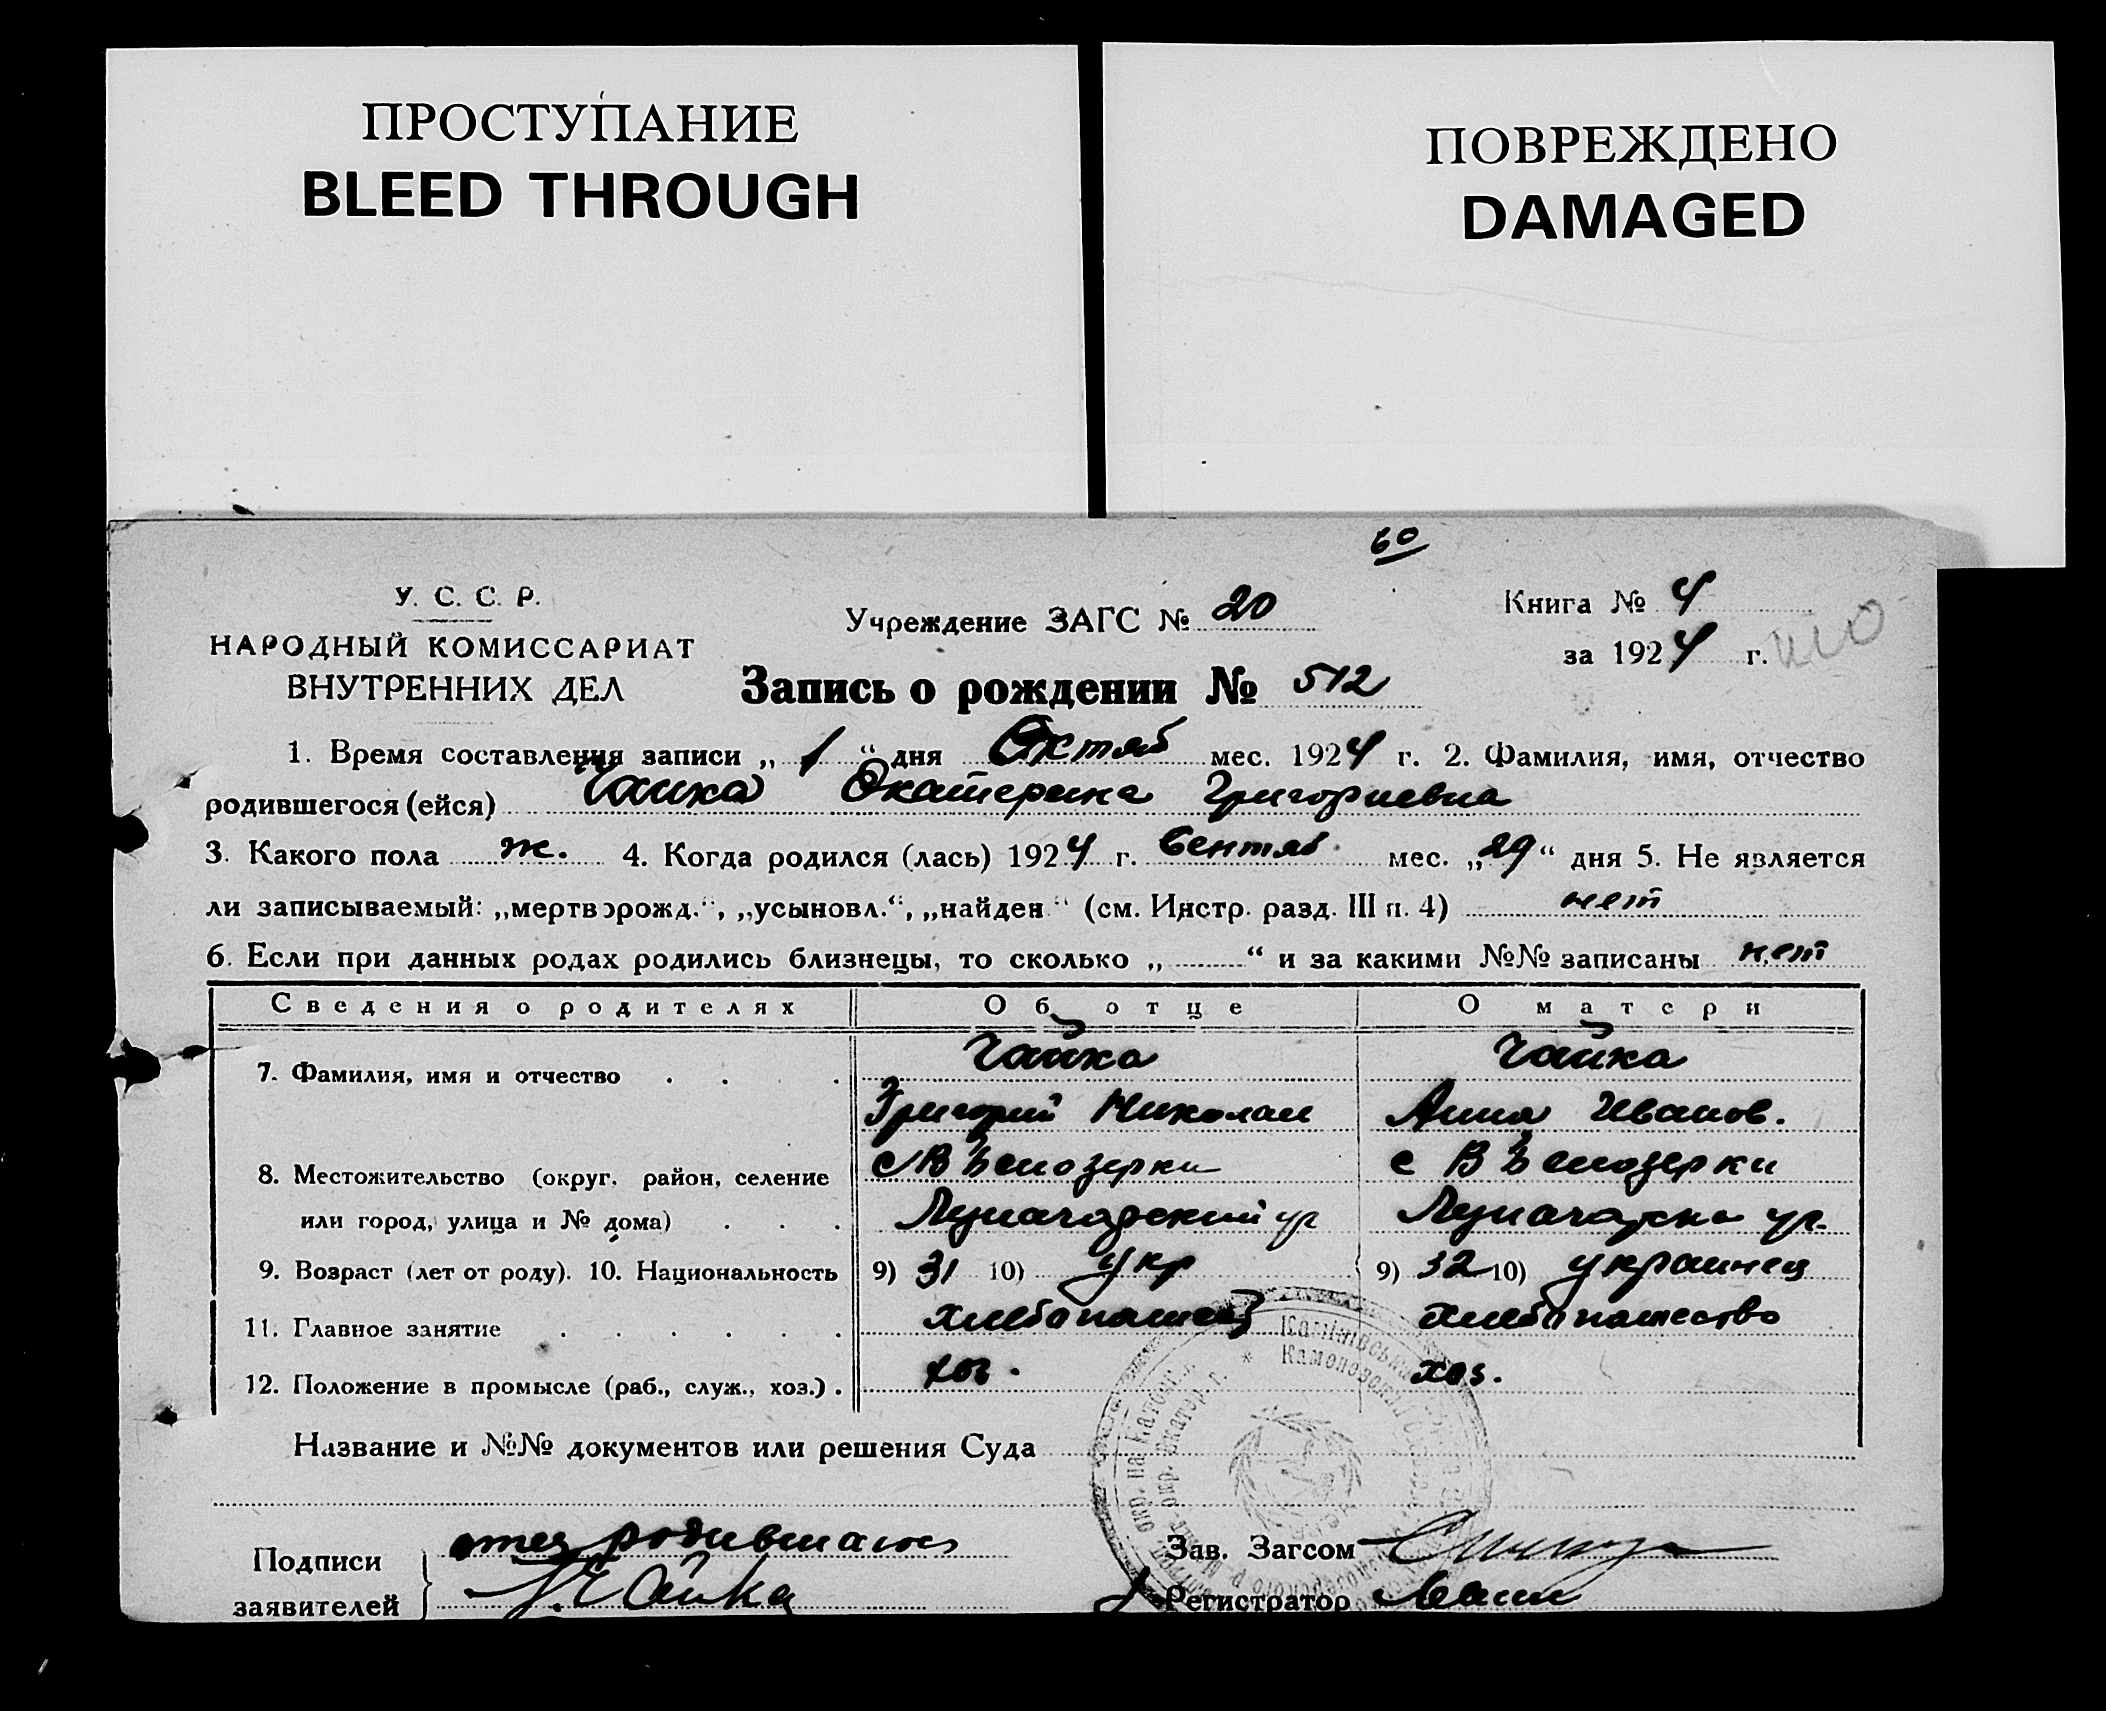 ПРОСТУПАНИЕ
BLEED THROUGH
ПОВРЕЖДЕНО
DAMAGED
60
У. С. С. Р.
НАРОДНЫЙ КОМИССАРИАТ
ВНУТРЕННИХ ДЕЛ
Учреждение ЗАГС № 20
Книга № 4
за 1924 г.
Запись о рождении № 512
1. Время составления записи „ 1 “ дня Октяб мес. 1924 г. 2. Фамилия, имя, отчество
родившегося (ейся) Чайка Екатерина Григориевна
3. Какого пола ж. 4. Когда родился (лась) 1924 г. Сентяб. мес. „29“ дня 5. Не является
ли записываемый: „мертворожд.“, „усыновл.“, „найден“ (см. Инстр. разд. III п. 4) нет
6. Если при данных родах родились близнецы, то сколько „ “ и за какими №№ записаны нет
Сведения о родителях Об отце О матери
7. Фамилия, имя и отчество Чайка Чайка
Григорий Николаи Анна Иванов.
8. Местожительство (округ, район, селение с В Белозерки с В Белозерки
или город, улица и № дома)
9. Возраст (лет от роду). 10. Национальность 9) 31 10) укр 9) 32 10) украинец
11. Главное занятие хлебопашец хлебопашество
12. Положение в промысле (раб., служ., хоз.). хоз. хоз.
Название и №№ документов или решения Суда
Подписи
заявителей
отец родившаюс
Г. Чайка
Зав. Загсом
Регистратор